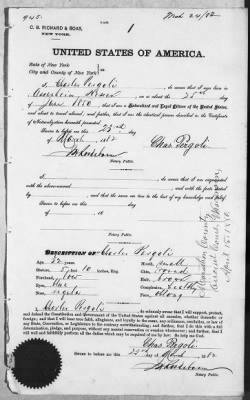 945.
Mch 24/82
C. B. RICHARD & BOAS,
NEW YORK.
1
UNITED STATES OF AMERICA.
State of New York
City and County of New York
I, Charles Pergoli do swear that I was born in
on or about the 25th day
of June 1850, that I am a Naturalized and Loyal Citizen of the United States,
and about to travel abroad, and further, that I am the identical person described in the Certificate
of Naturalization herewith presented.
Sworn to before me this 23rd
day of March 1882
Chas. Pergoli
Notary Public.
do swear that I am acquainted
with the above-named
and with the facts
and that the same are true to the best of my knowledge and belief.
Sworn to before me this
day
of 18
Notary Public.
DESCRIPTION OF Charles Pergoli
Age, 32 years
Mouth, small
Stature, 5 feet 10 inches, Eng.
Chin, round
Forehead, low
Hair, brown
Eyes, blue
Complexion, healthy
Nose, regular
Face, oblong
April 15 1880
I, Charles Pergoli do solemnly swear that I will support, protect,
and defend the Constitution and Government of the United States against all enemies, whether domestic or
foreign; and that I will bear true faith, allegiance, and loyalty to the same, any ordinance, resolution, or law of
any State, Convention, or Legislature to the contrary notwithstanding; and further, that I do this with a full
determination, pledge, and purpose, without any mental reservation or evasion whatsoever; and further, that
I will well and faithfully perform all the duties which may be required of me by law: So help me God.
Chas Pergoli
Sworn to before me this 23rd day of March 1882
Notary Public.